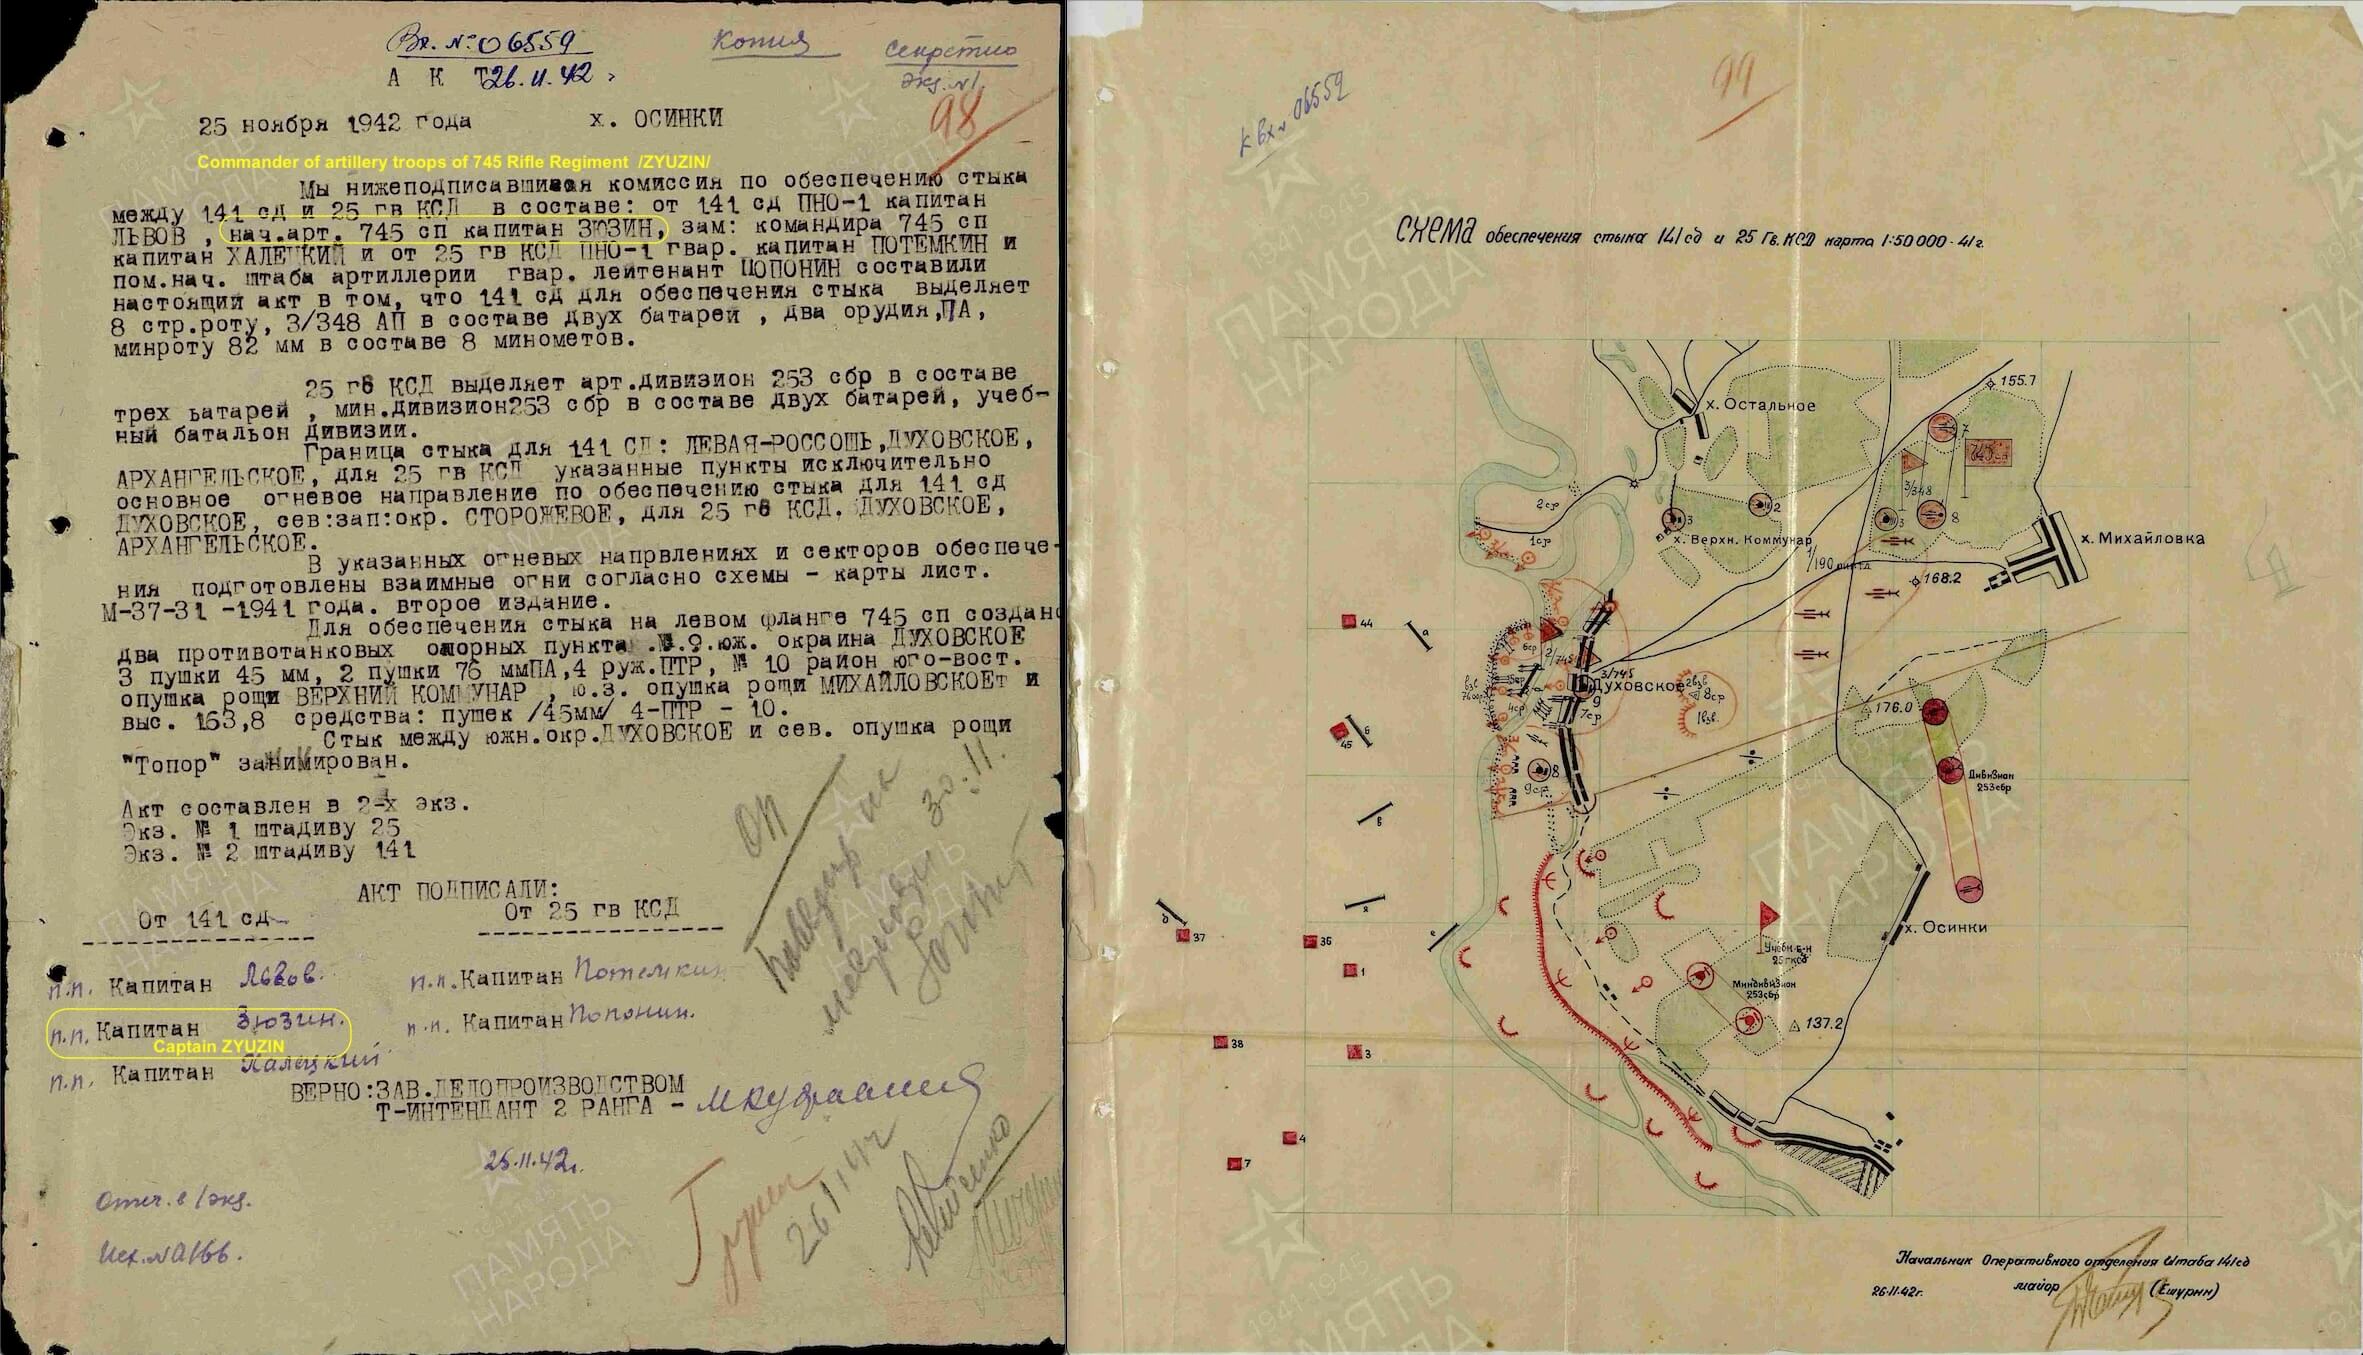 Вх. № 06559
Копия
Секретно
экз. №1
А К Т 26.11.42
98
25 ноября 1942 года х. ОСИНКИ
Commander of artillery troops of 745 Rifle Regiment /ZYUZIN/
Мы нижеподписавшиеся комиссия по обеспечению стыка
между 141 сд и 25 гв КСД в составе: от 141 сд ПНО-1 капитан
ЛЬВОВ , нач.арт. 745 сп капитан ЗЮЗИН, зам: командира 745 сп
капитан ХАЛЕЦКИЙ и от 25 гв КСД ПНО-1 гвар. капитан ПОТЕМКИН и
пом.нач. штаба артиллерии гвар. лейтенант ПОПОНИН составили
настоящий акт в том, что 141 сд для обеспечения стыка выделяет
8 стр.роту, 3/348 АП в составе двух батарей , два орудия,ПА,
минроту 82 мм в составе 8 минометов.
25 гв КСД выделяет арт.дивизион 253 сбр в составе
трех батарей , мин.дивизион253 сбр в составе двух батарей, учеб-
ный батальон дивизии.
Граница стыка для 141 СД: ЛЕВАЯ-РОССОШЬ,ДУХОВСКОЕ,
АРХАНГЕЛЬСКОЕ, для 25 гв КСД указанные пункты исключительно
основное огневое направление по обеспечению стыка для 141 сд
ДУХОВСКОЕ, сев:зап:окр. СТОРОЖЕВОЕ, для 25 гв КСД. ДУХОВСКОЕ,
АРХАНГЕЛЬСКОЕ.
В указанных огневых напрвлениях и секторов обеспече-
ния подготовлены взаимные огни согласно схемы - карты лист.
М-37-31 -1941 года. второе издание.
Для обеспечения стыка на левом фланге 745 сп создано
два противотанковых опорных пункта .№.9.юж. окраина ДУХОВСКОЕ
3 пушки 45 мм, 2 пушки 76 ммПА,4 руж.ПТР, № 10 район юго-вост.
опушка рощи ВЕРХНИЙ КОММУНАР , ю.з. опушка рощи МИХАЙЛОВСКОЕт и
выс. 163,8 средства: пушек /45мм/ 4-ПТР - 10.
Стык между южн.окр.ДУХОВСКОЕ и сев. опушка рощи
"Топор" заминирован.
Акт составлен в 2-х экз.
Экз. № 1 штадиву 25
Экз. № 2 штадиву 141
АКТ ПОДПИСАЛИ:
От 141 сд
От 25 гв КСД
п.п. Капитан Львов.
п.п. Капитан Потемкин
п.п. Капитан Зюзин.
Captain ZYUZIN
п.п. Капитан Попонин.
п.п. Капитан Халецкий
ВЕРНО:ЗАВ.ДЕЛОПРОИЗВОДСТВОМ
Т-ИНТЕНДАНТ 2 РАНГА -
25.11.42г.
Отп. в 1экз.
Исх.№0166.
ОП
30.11.
ПАМЯТЬ НАРОДА
К вх № 06559
99
СХЕМА обеспечения стыка 141сд и 25 Гв.КСД карта 1:50 000-41г.
155.7
х. Остальное
745 сп
7
3/348
2ср
1ср
3
2
3
8
х. Верхн. Коммунар
х. Михайловка
168.2
44
а
6ср
2/745
3/745
Духовское
9
8ср
1взв.
4ср
7ср
176.0
45
б
8
9ср
Дивизион
253сбр
в
г
д
е
37
36
1
х. Осинки
Учебн б-н
25гксд
Миндивизион
253сбр
137.2
38
3
4
7
Начальник Оперативного отделения Штаба 141сд
26.11.42г. майор (Ешурин)